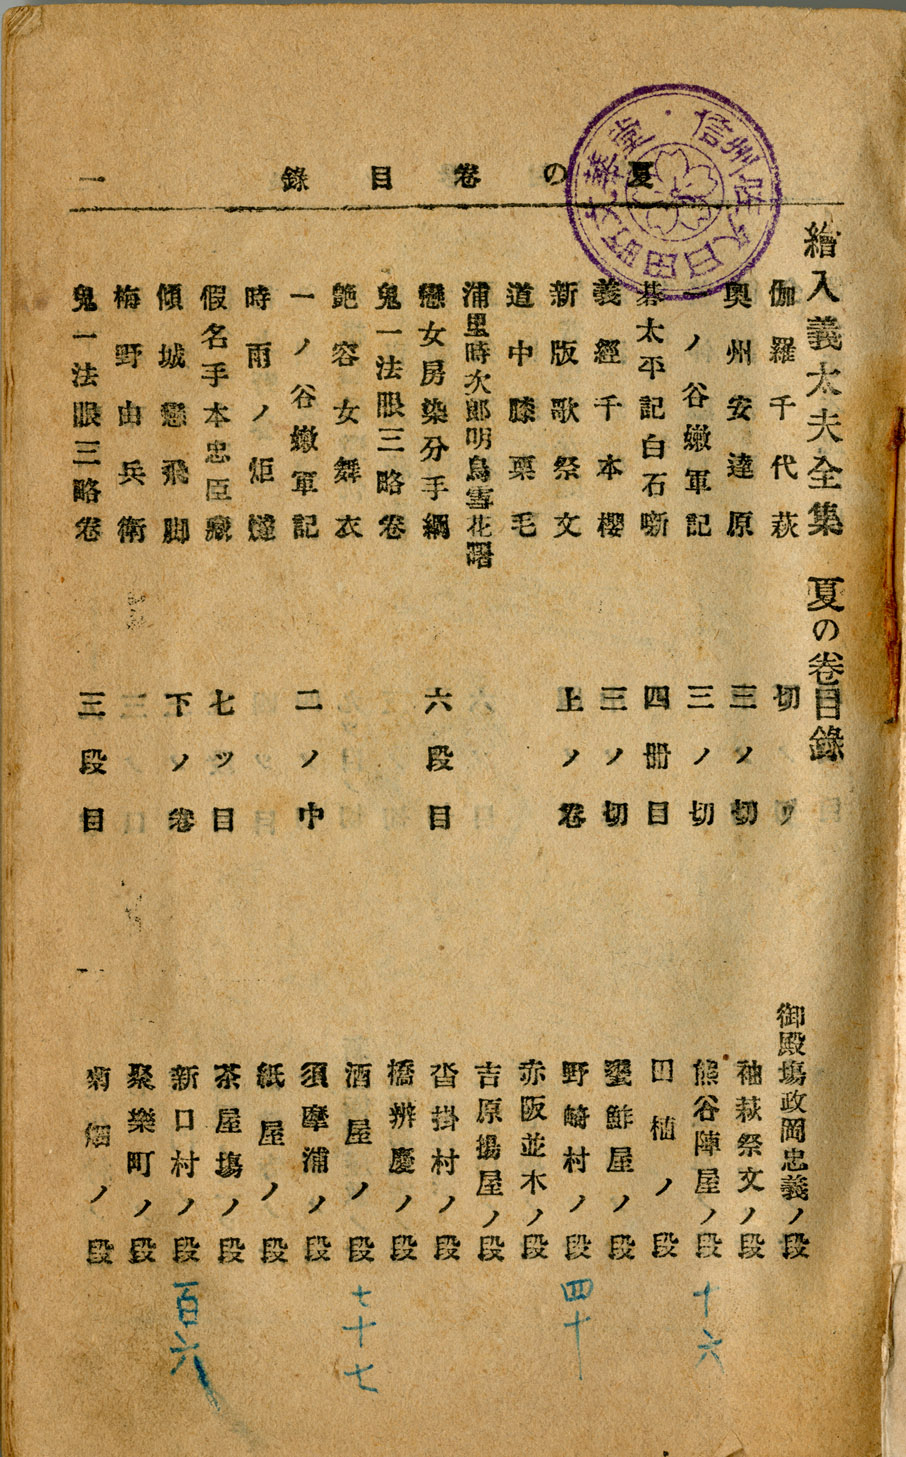 夏の卷目錄
一
信州佐久臼田町文華堂
繪入義太夫全集 夏の卷目錄
伽羅千代萩 切ノ 御殿塲政岡忠義ノ段
奥州安達原 三ノ切 袖萩祭文ノ段
一ノ谷嫩軍記 三ノ切 熊谷陣屋ノ段
碁太平記白石噺 四冊目 田植ノ段
義經千本櫻 三ノ切 壐鮓屋ノ段
新版歌祭文 上ノ卷 野崎村ノ段
道中膝栗毛 赤阪並木ノ段
浦里時次郎明烏雪花曙 吉原揚屋ノ段
戀女房染分手綱 六段目 沓掛村ノ段
鬼一法眼三略卷 橋辨慶ノ段
艶容女舞衣 酒屋ノ段
一ノ谷嫩軍記 二ノ中 須摩浦ノ段
時雨ノ炬燵 紙屋ノ段
假名手本忠臣藏 七ッ目 茶屋塲ノ段
傾城戀飛脚 下ノ卷 新口村ノ段
梅野由兵衛 聚樂町ノ段
鬼一法眼三略卷 三段目 菊畑ノ段
十六
四十
七十七
百六